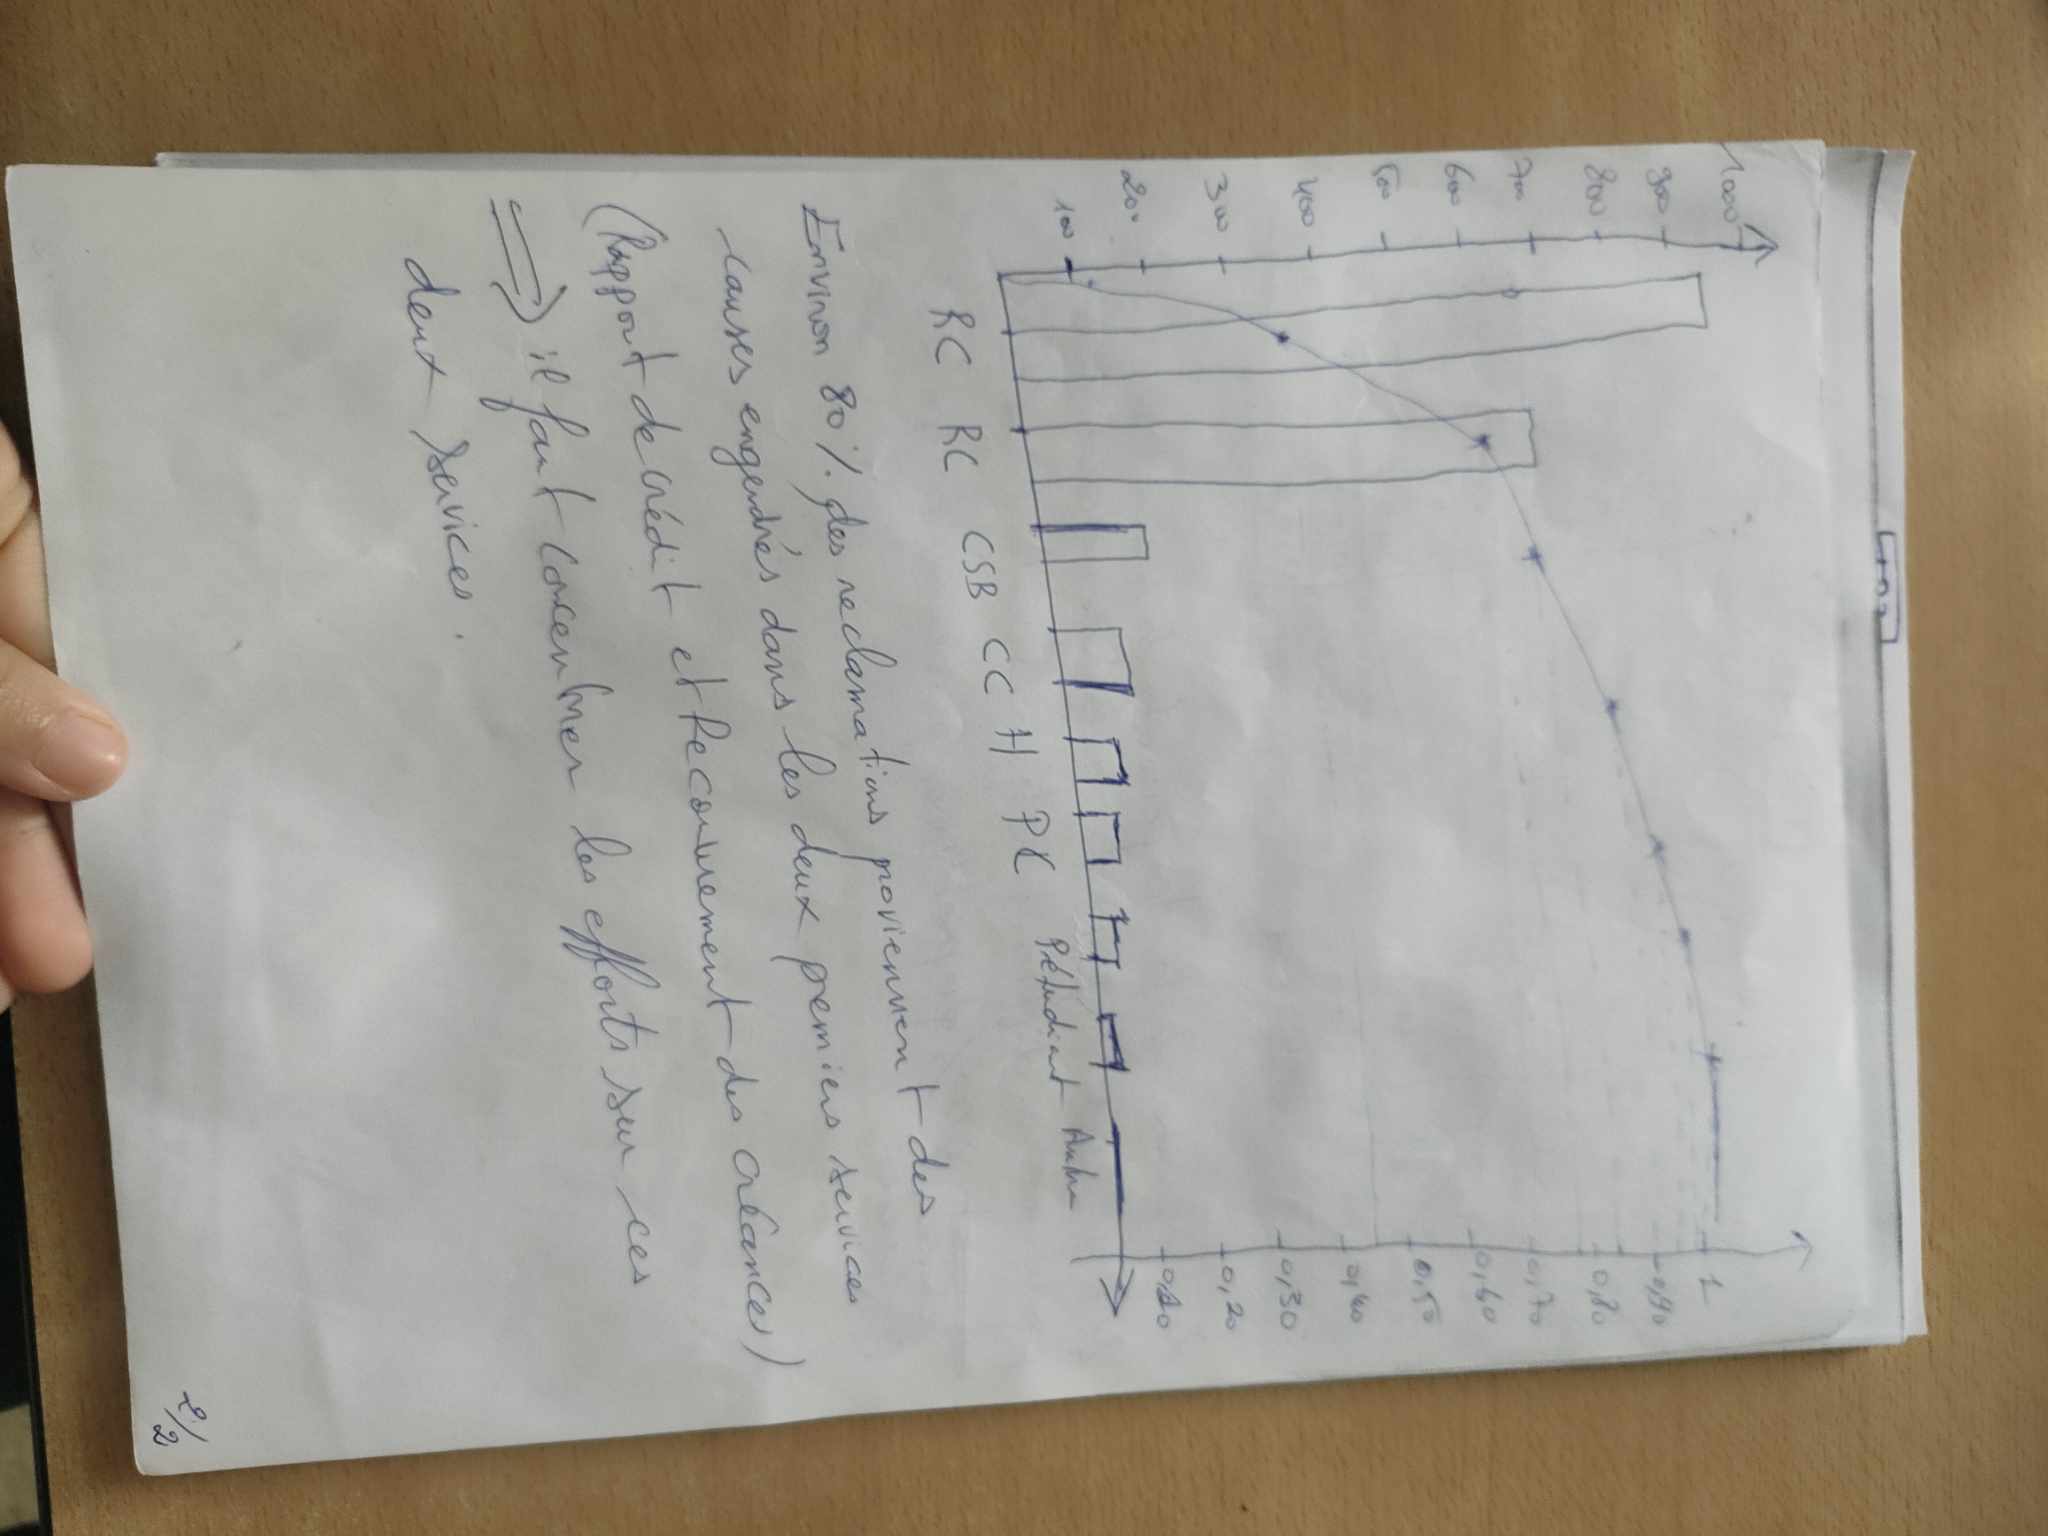 1000
900
800
700
600
500
400
300
200
100
1
0,90
0,80
0,70
0,60
0,50
0,40
0,30
0,20
0,10
RC RC CSB CC H PC Pétudiant
Environ 80% des reclamations proviennent des
causes engendrés dans les deux premiers services
(Rapport de crédit et Recouvrement des créances)
⟹ il faut concentrer les efforts sur ces
deux services.
2/2